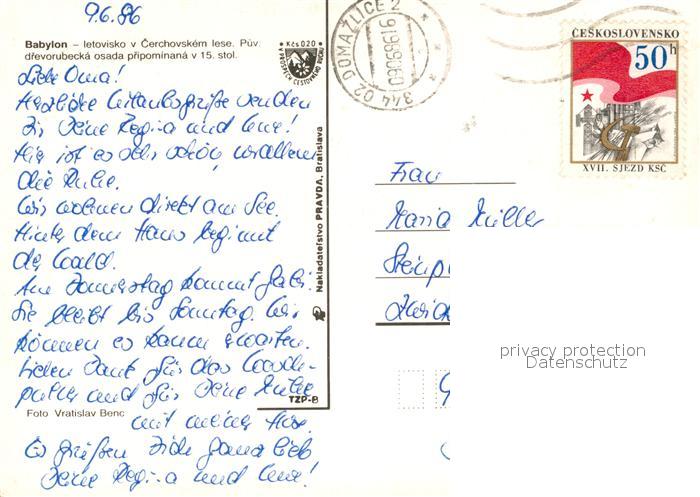 9.6.86
Babylon – letovisko v Čerchovském lese. Pův.
dřevorubecká osada připomínaná v 15. stol.
Kčs 0,20
VE PROSPĚCH CESTOVNÉHO RUCHU
Liebe Oma!
Herzliche Urlaubsgrüße senden
Dir Deine Regina und Uwe!
Hier ist es sehr schön, vor allem
die Ruhe.
Wir wohnen direkt am See.
Hinter dem Haus beginnt
der Wald.
Am Donnerstag kommt Gabi.
Sie bleibt bis Sonntag. Wir
können es kaum erwarten.
Vielen Dank für das
und für Deine Mühe
mit meiner Hose.
Es grüßen Dich ganz lieb
Deine Regina und Uwe!
Foto Vratislav Benc
TZP-B
Nakladateľstvo PRAVDA, Bratislava
344 02 DOMAŽLICE 2
ČESKOSLOVENSKO
50h
XVII. SJEZD KSČ
Frau
Maria Müller
privacy protection
Datenschutz